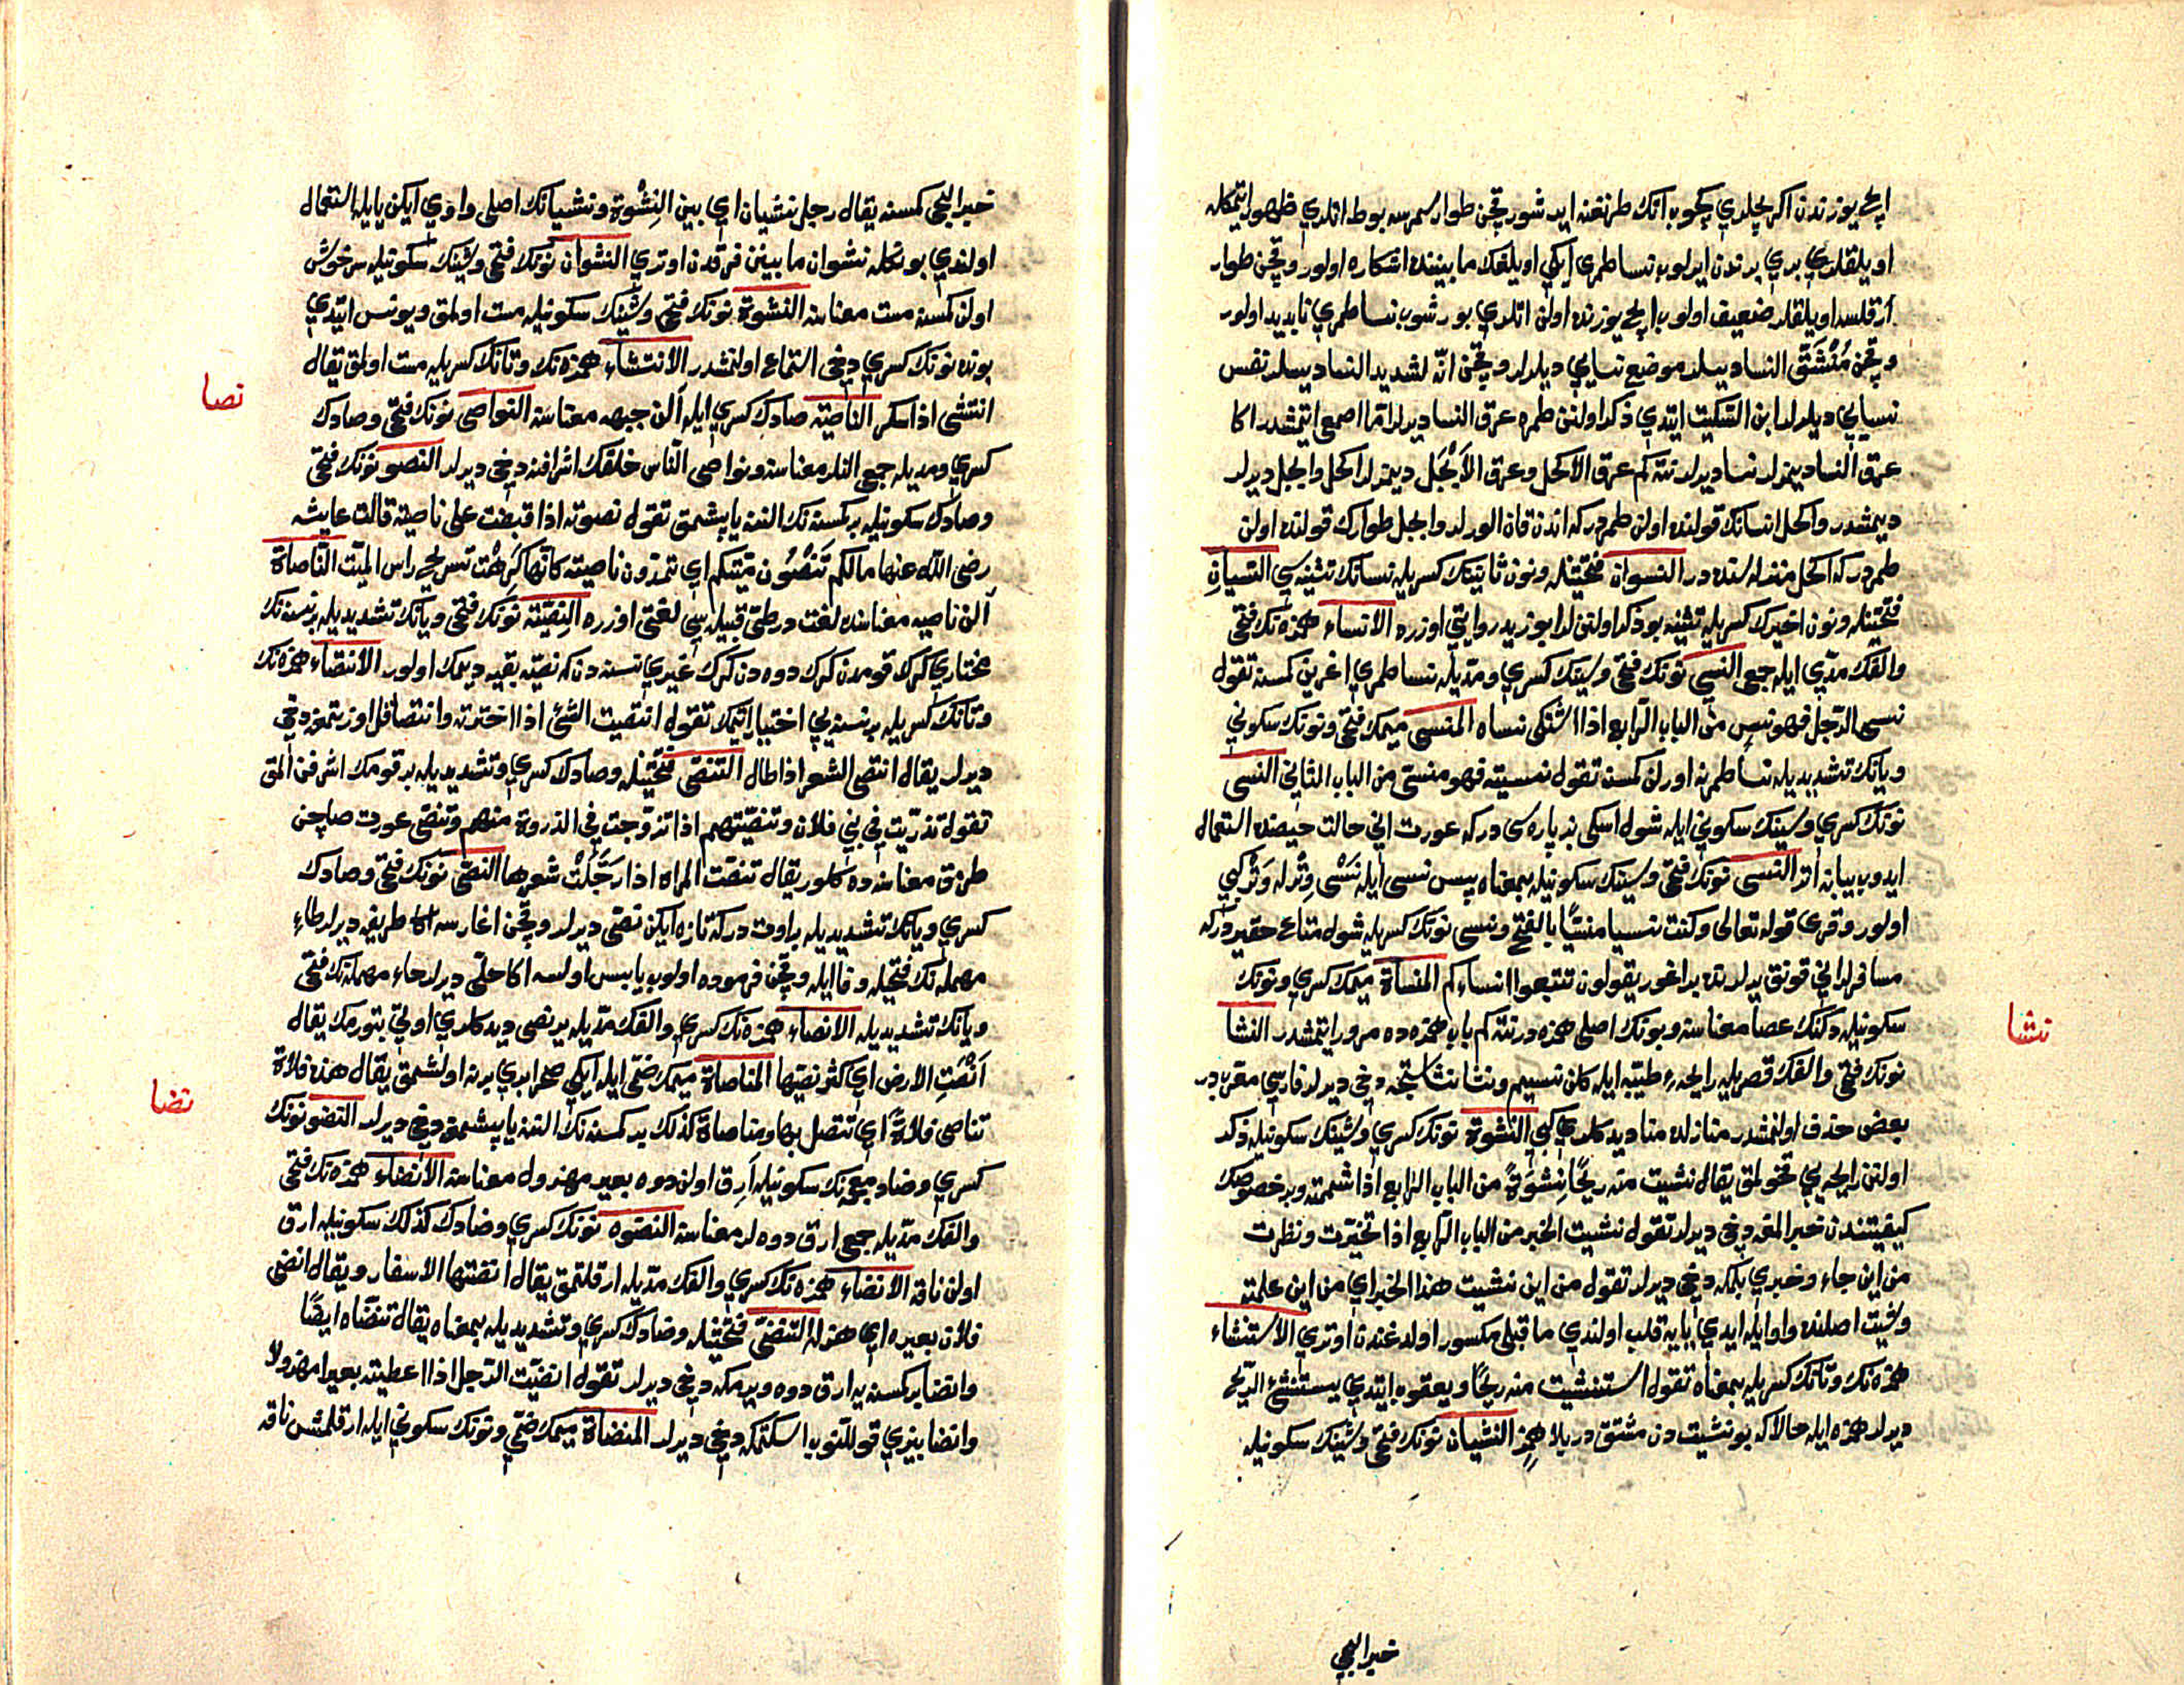 ايچ يوزندن اكر يجلدي كچوب انك طرنغنه ايد شور قچن طوار سمرسه بوط اتلري ظهور اتمكله
اويلقلري بري برندن ايرلوب نسا طمري ايكي اويلقك مابيننده اشكاره اولور وقچن طوار
ارقلسه اويلقلر ضعيف اولوب ايچ يوزنده اولن اتلري بورشوب نسا طمري ناپديد اولور
وقچن مُنْشَقّ النسا ديسلر موضع نسايي ديلرلر وقچن انّه لشديد النسا ديسلر نفس
نسايي ديلرلر ابن السكيت ايتدي ذكر اولنن طمره عرق النسا ديرلر اما اصمعي ايتمشدر اكا
عرق النسا ديمزلر نسا ديرلر نته كم عرق الاكحل وعرق الاَبْجَل ديمزلر اكحل وابجل ديرلر
ديمشدر واكحل انسانك قولنده اولن طمردر كه اندن قان الورلر وابجل طوارك قولنده اولن
طمردر كه اكحل منزله سنده در النسوان فتحتينله ونون ثانينك كسريله نسانك تثنيه سي النسيانِ
فتحتينله ونون اخيرك كسريله تثنيه بو ذكر اولنن لر ابو زيد روايتي اوزره الانساء همزه نك فتحي
والفك مدّي ايله جمعي النسي نونك فتحي وسينك كسري ومدّيله نسا طمري اغرين كمسنه تقول
نسي الرّجل فهو نسٍ من الباب الرّابع اذا اشتكى نساه المنسي ميمك فتحي ونونك سكوني
ويانك تشديديله نسا طمرنه اورلن كمسنه تقول نسيته فهو منسيّ من الباب الثاني النسي
نونك كسري وسينك سكوني ايله شول اسكي بز پاره سي در كه عورت اني حالت حيضنده استعمال
ايدوب بيانه اتر النسي نونك فتحي وسينك سكونيله بمعناه پس نسي ايله نَسْي وِتْر له وَتْر كبي
اولور وقرى قوله تعالى وكنت نسيا منسيّا بالفتح ونسي نونك كسريله شول متاع حقيردر كه
مسافرلر اني قونق يرلرنده براغور يقولون تتبعوا انساءكم المنساة ميمك كسري ونونك
سكونيله دكنك عصا معناسنه وبونك اصلي همزه در نته كم باب همزه ده مرور ايتمشدر النشا
نونك فتحي والفك قصريله رايحهٔ طيبه ايله كلن نسيم ونشا نشاستجه دخي ديرلر فارسي معربدر
بعض حذف اولنمشدر منازله منا ديدكلري كبي النشوة نونك كسري وشينك سكونيله ذكر
اولنن رايحه يي قخولمق يقال نشيت منه ريحًا نِشْوَةً من الباب الرابع اذا شممته وبر خصوصك
كيفيتندن خبر المغه دخي ديرلر تقول نشيت الخبر من الباب الرّابع اذا تخيرّت ونظرت
من اين جاء وخبري بلكه دخي ديرلر تقول من اين نشيت هذا الخبر اي من اين علمته
ونشيت اصلنده واو ايله ايدي يايه قلب اولندي ما قبلي مكسور اولدغندن اوتري الاستنشاء
همزه نك وتانك كسريله بمعناه تقول استنشيت منه ريحًا ويعقوب ايتدي يستنشئ الريح
ديرلر همزه ايله حالا كه بو نشيت دن مشتق در بلا همزٍ النشيان نونك فتحي وشينك سكونيله
خبر اليجي
نشا
خبر اليجي كمسنه يقال رجل نشيان اي بين النِشْوة ونشيانك اصلي واوي ايكن يايله استعمال
اولندي بو شكله نشوان مابينن فرقدن اوتري النشوان نونك فتحي وشينك سكونيله سرخوش
اولن كمسنه مست معناسنه النشوة نونك فتحي وشينك سكونيله مست اولمق ويونس ايتدي
بونده نونك كسري دخي استماع اولنمشدر الانتشاء همزه نك وتانك كسريله مست اولمق يقال
انتشى اذا سكر الناصيّة صادك كسري ايله الن جبهه معناسنه النواصي نونك فتحي وصادك
كسري ومديله جمعي النلر معناسنه ونواصي الناس خلقك اشرافنه دخي ديرلر النصو نونك فتحي
وصادك سكونيله بر كمسنه نك الننه ياپشمق تقول نصوته اذا قبضت على ناصيته قالت عايشه
رضي الله عنها مالكم تَنْصُون ميتكم اي تمدّون ناصيته كانّها كرِهَت تسريح راس الميّت النّاصاة
الن ناصيه معناسنده لغت در طيّ قبيله سي لغتي اوزره النِّقيّة نونك فتحي ويانك تشديديله بر نسنه نك
مختاري كرك قومدن كرك دوه دن كرك غيري نسنه دن كه نصيّه بقيه ديمك اولور الانتصاء همزه نك
وتانك كسريله بر نسنه يي اختيار اتمك تقول انتصيت الشئ اذا اخترته وانتصا قل اوزتمغه دخي
ديرلر يقال انتصى الشعر اذا طال التنصّي فتحتينله وصادك كسري وتشديديله بر قومك اشرفن المق
تقول تذرّيت في بني فلان وتنصّيتهم اذا تزوّجت في الذروة منهم وتنصّي عورت صاچن
طرنق معناسنه ده كلور يقال تنصّت المراه اذا رَجَّلَتْ شعرها النصي نونك فتحي وصادك
كسري ويانك تشديديله بر اوت در كه تازه ايكن نصّي ديرلر وقچن اغارسه اكا طريفه ديرلر طاءِ
مهمله نك فتحيله وفا ايله وقچن فرموده اولوب يابس اولسه اكا حليّ ديرلر حاء مهمله نك فتحي
ويانك تشديديله الانصاء همزه نك كسري والفك مدّيله ير نصي ديدكلري اوتي بتورمك يقال
اَنْصَتِ الارض اي كثر نصيّها المناصاة ميمك ضمّي ايله ايكي صحرا بري برنه اولشمق يقال هذه فلاة
تناصي فلاةً اي تتصل بها ومناصاة كذلك بر كمسنه نك الننه ياپشمغه دخي ديرلر النضو نونك
كسري وضاد معجمه نك سكونيله ارق اولن دوه بعير مهزول معناسنه الانضاء همزه نك فتحي
والفك مدّيله جمعي ارق دوه لر معناسنه النضوه نونك كسري وضادك كذلك سكونيله ارق
اولن ناقه الانضاء همزه نك كسري والفك مدّيله ارقلتمق يقال انضتها الاسفار ويقال انضى
فلان بعيره اي هزله التنضّي فتحتينله وضادك كسري وتشديديله بمعناه يقال تنضّاه ايضًا
وانضا بر كمسنه يه ارق دوه ويرمكه دخي ديرلر تقول انضيّت الرّجل اذا اعطيته بعيرا مهزولا
وانضا بزي قوللنوب اسكتمكه دخي ديرلر المنضاة ميمك ضمّي ونونك سكوني ايله ارقلمش ناقه
نصا
نضا